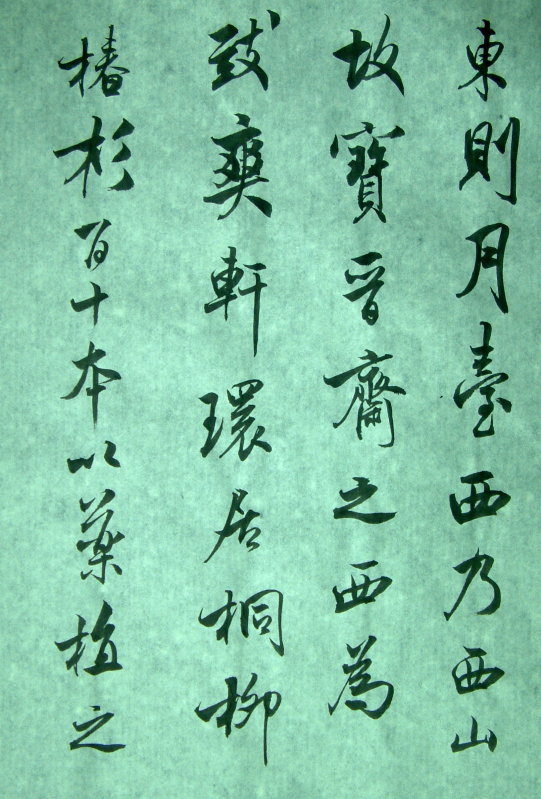 東則月臺西乃西山
故寶晉齋之西為
致爽軒環居桐柳
椿杉百十本以藥植之